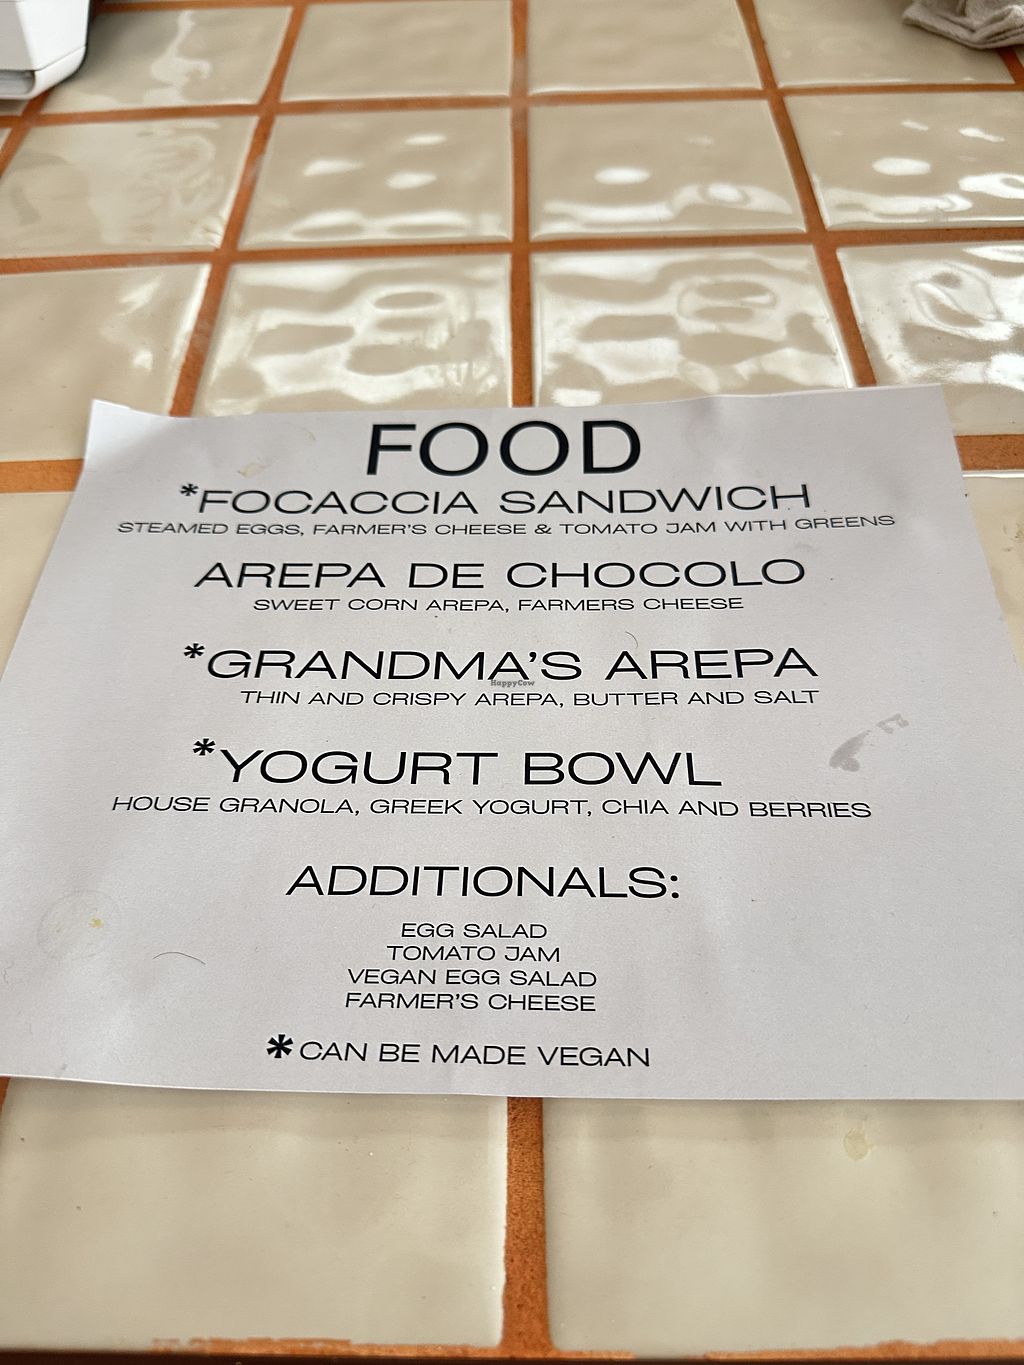 FOOD
*FOCACCIA SANDWICH
STEAMED EGGS, FARMER'S CHEESE & TOMATO JAM WITH GREENS
AREPA DE CHOCOLO
SWEET CORN AREPA, FARMERS CHEESE
*GRANDMA'S AREPA
HappyCow
THIN AND CRISPY AREPA, BUTTER AND SALT
*YOGURT BOWL
HOUSE GRANOLA, GREEK YOGURT, CHIA AND BERRIES
ADDITIONALS:
EGG SALAD
TOMATO JAM
VEGAN EGG SALAD
FARMER'S CHEESE
*CAN BE MADE VEGAN